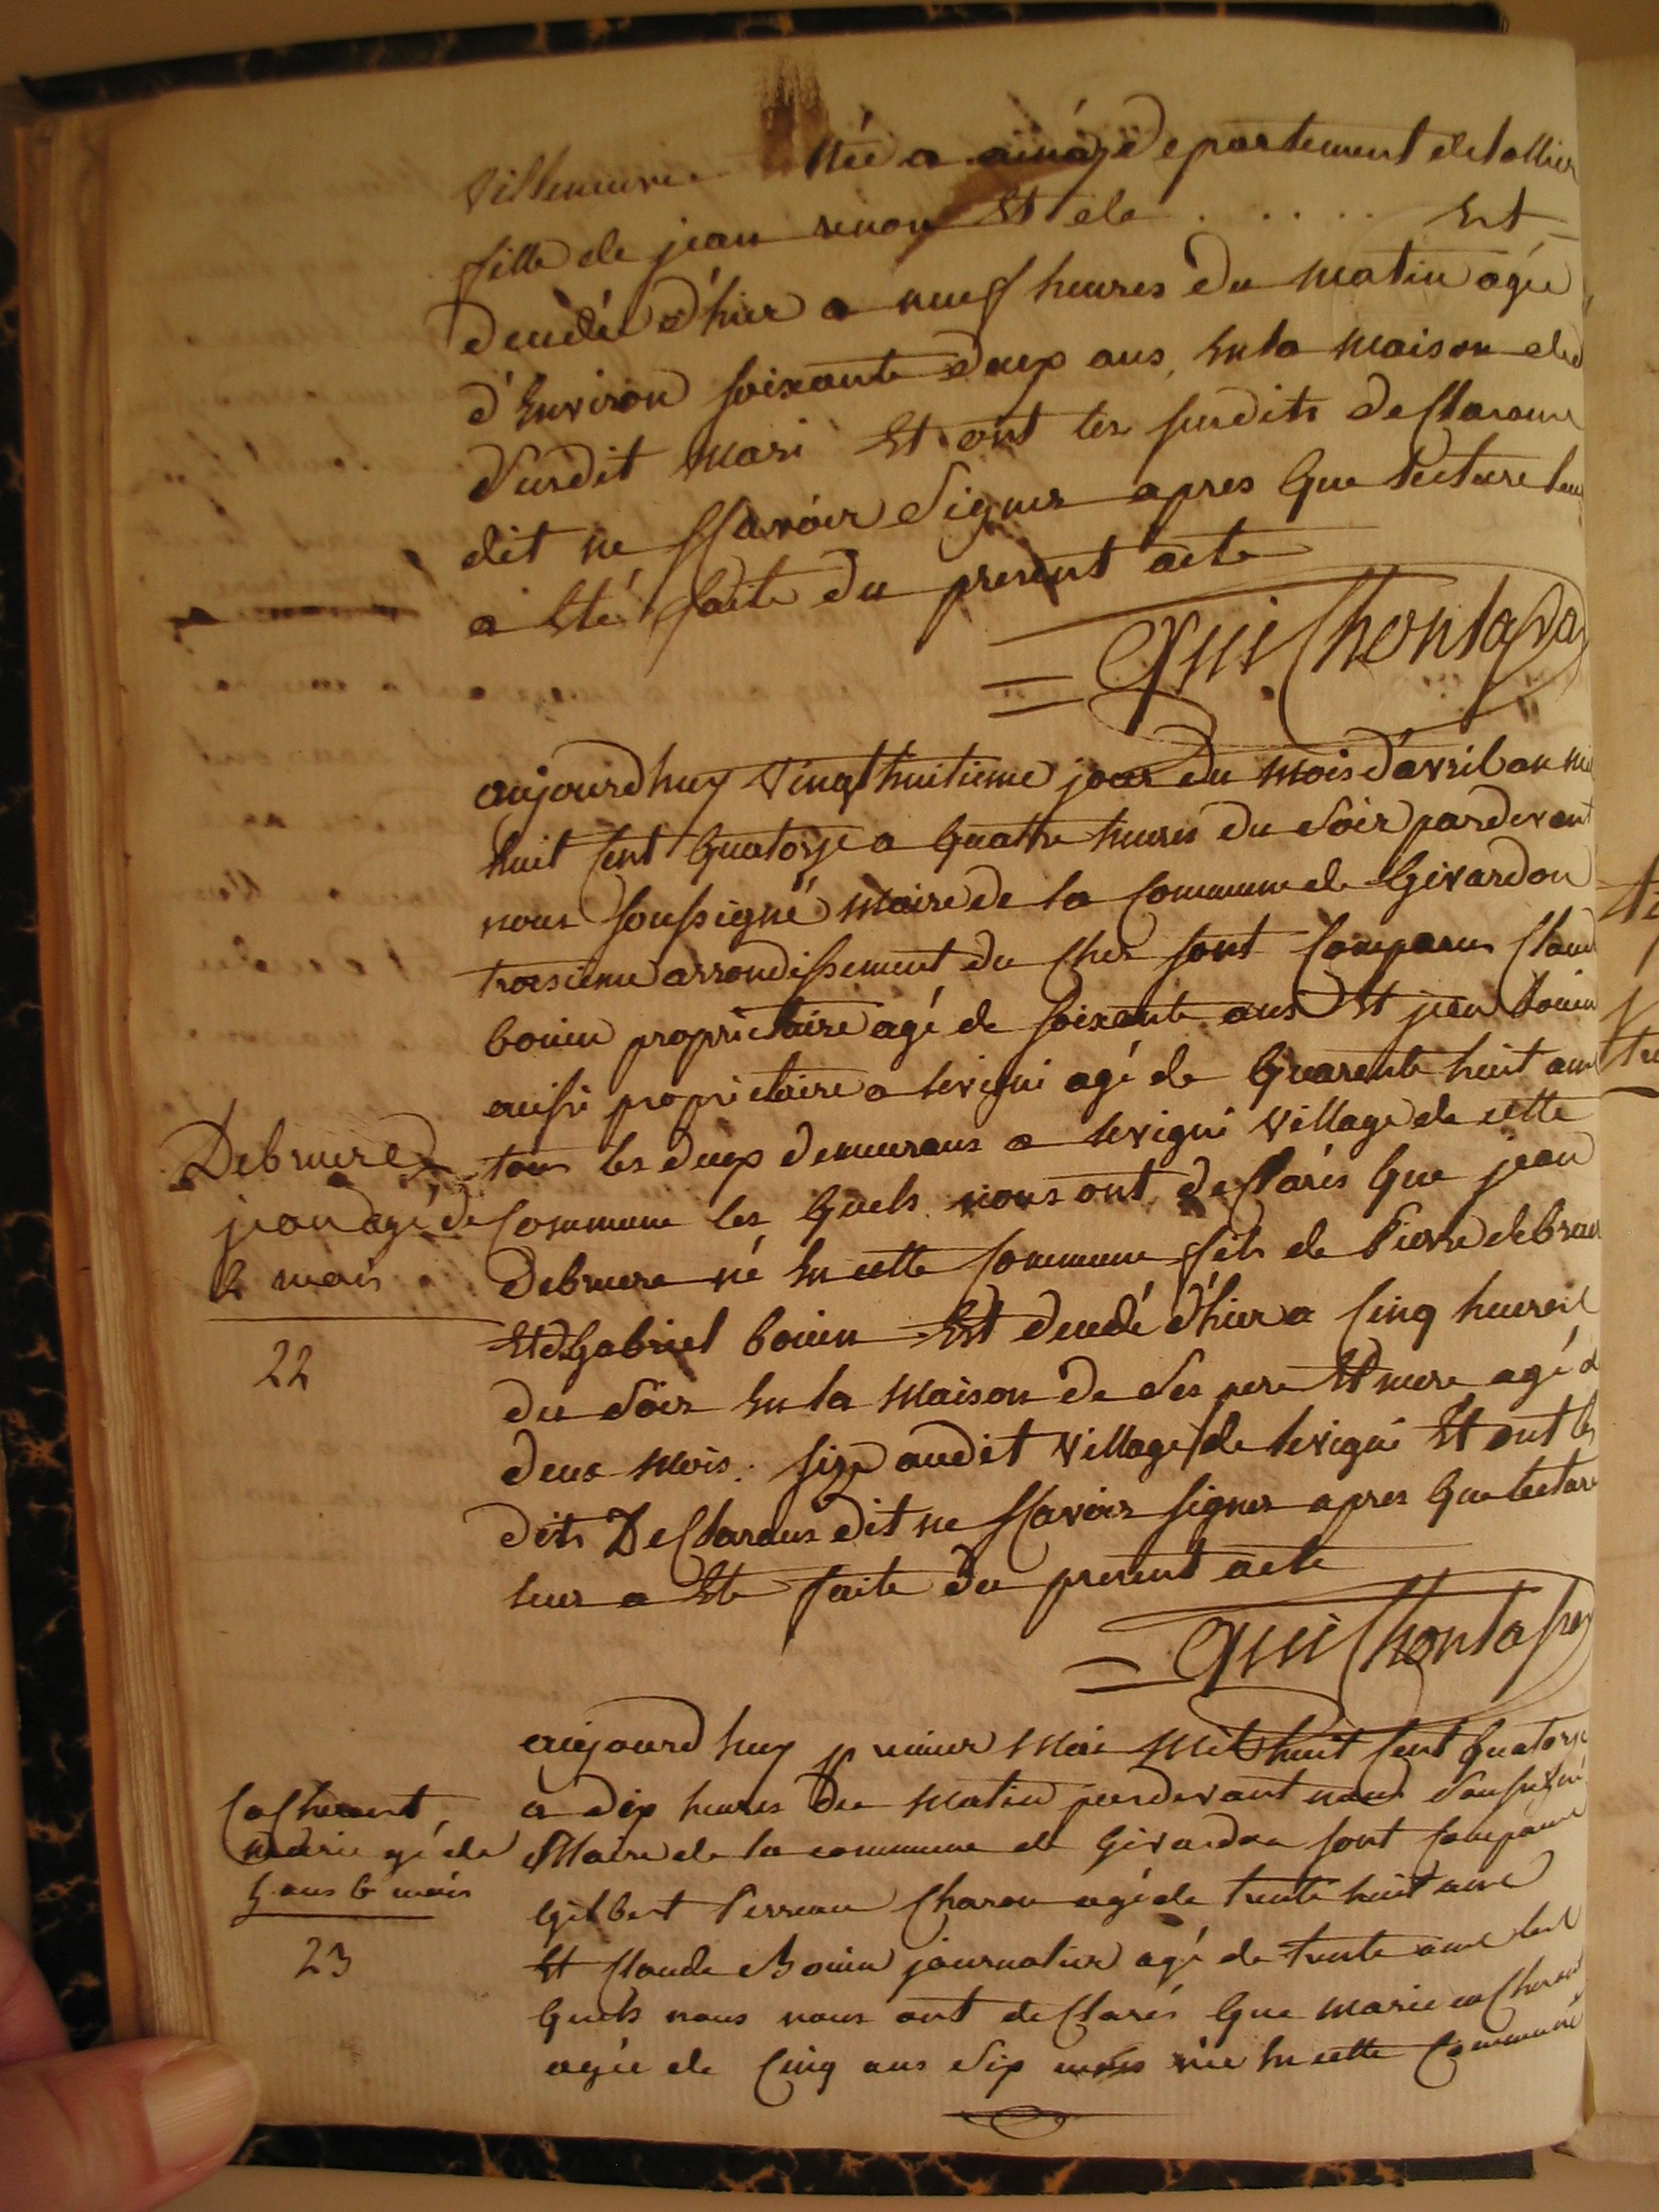 Villeneuve Née a ainay Departement de lallier
fille de jean renon Et de . . . . . Est
decedée d'hier a neuf heures du matin agée
d'Environ soixante deux ans, En la maison de
Surdit mari Et ont les surdits declarans
dit ne scavoir Signer apres que Lecture leur
a Eté faite du present acte
aujourdhuy Vingt huitieme jour du mois d'avril an mil
huit cent quatorze a quatre heures du Soir pardevant
nous soussigné maire de la commune de Givardon
troisieme arrondissement du cher sont comparus claude
bouin proprietaire agé de soixante ans Et jean bouin
aussi proprietaire a sevigni agé de quarente huit ans
tous les deux demeurans a sevigni Village de cette
commune les quels nous ont declarés que jean
Debruere né En cette commune fils de Pierre debruere
Et de Gabriel bouin Est decedé d'hier a cinq heures
du Soir En la maison de Ses pere Et mere agé de
deux mois. size audit Village de sevigni Et ont les
dits Declarans dit ne scavoir signer apres que lecture
leur a Eté faite du present acte
Debruere
jean agé de
2 mois
22
aujourdhuy premier Mai Mil huit cent quatorze
a dix heures du matin pardevant nous Soussigné
Maire de la commune de Givardon sont comparus
Gilbert Perreau charon agé de trente huit ans
Et claude Bouin journalier agé de trente ans les
quels nous nous ont declarés que marie cacherant
agée de cinq ans Six mois née En cette commune
cacherant
marie agé de
5 ans 6 mois
23